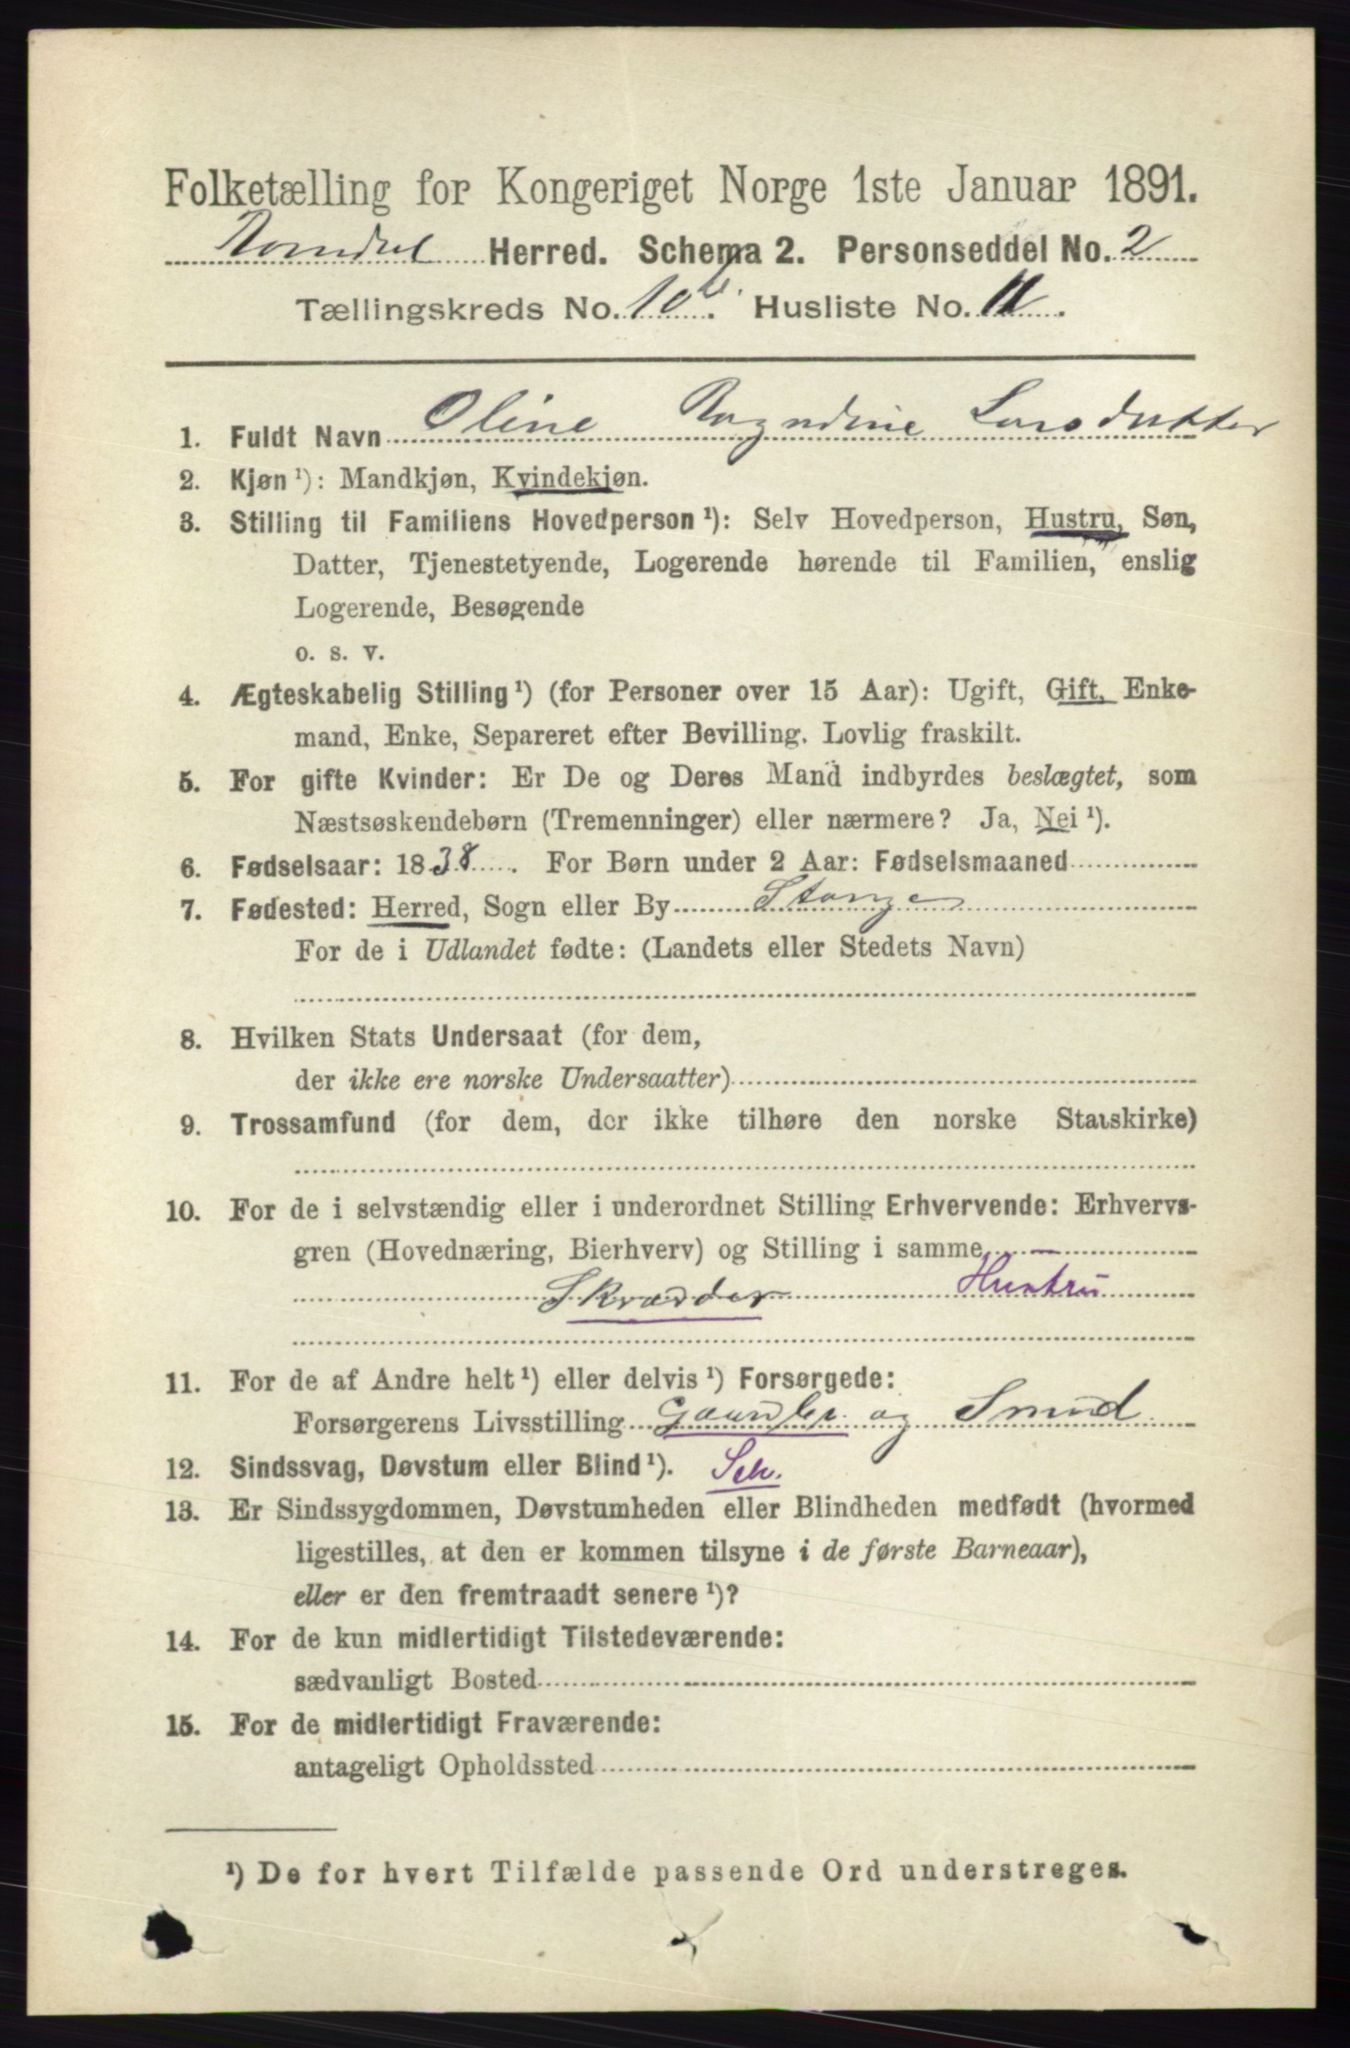 Folketælling for Kongeriget Norge 1ste Januar 1891.
Romedal Herred. Schema 2. Personseddel No. 2
Tællingskreds No. 10 b. Husliste No. 11.
1. Fuldt Navn Oline Larsdatter
2. Kjøn ¹): Mandkjøn, Kvindekjøn.
3. Stilling til Familiens Hovedperson ¹): Selv Hovedperson, Hustru, Søn,
Datter, Tjenestetyende, Logerende hørende til Familien, enslig
Logerende, Besøgende
o. s. v.
4. Ægteskabelig Stilling ¹) (for Personer over 15 Aar): Ugift, Gift, Enke-
mand, Enke, Separeret efter Bevilling. Lovlig fraskilt.
5. For gifte Kvinder: Er De og Deres Mand indbyrdes beslægtet, som
Næstsøskendebørn (Tremenninger) eller nærmere? Ja, Nei ¹).
6. Fødselsaar: 1838. For Børn under 2 Aar: Fødselsmaaned
7. Fødested: Herred, Sogn eller By Stange
For de i Udlandet fødte: (Landets eller Stedets Navn)
8. Hvilken Stats Undersaat (for dem,
der ikke ere norske Undersaatter)
9. Trossamfund (for dem, der ikke tilhøre den norske Statskirke)
10. For de i selvstændig eller i underordnet Stilling Erhvervende: Erhvervs-
gren (Hovednæring, Bierhverv) og Stilling i samme —
Skrædder Hustru
11. For de af Andre helt ¹) eller delvis ¹) Forsørgede:
Forsørgerens Livsstilling Gaardbr. og Smed
12. Sindssvag, Døvstum eller Blind ¹). Selv.
13. Er Sindssygdommen, Døvstumheden eller Blindheden medfødt (hvormed
ligestilles, at den er kommen tilsyne i de første Barneaar),
eller er den fremtraadt senere ¹)?
14. For de kun midlertidigt Tilstedeværende:
sædvanligt Bosted
15. For de midlertidigt Fraværende:
antageligt Opholdssted
¹) De for hvert Tilfælde passende Ord understreges.